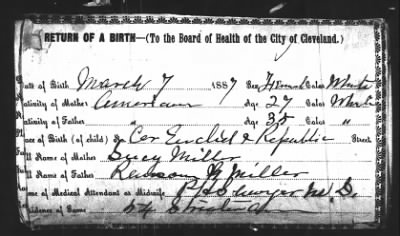 RETURN OF A BIRTH—(To the Board of Health of the City of Cleveland.)
ate of Birth March 7 1887 Sex Female Color White
ativity of Mother American Age 27 Color White
ativity of Father " Age 38 Color "
ace of Birth (of child) Cor Euclid & Republic Street
ll Name of Mother Lucy Miller
ll Name of Father Miller
ame of Medical Attendant or Midwife M.D.
esidence of Same